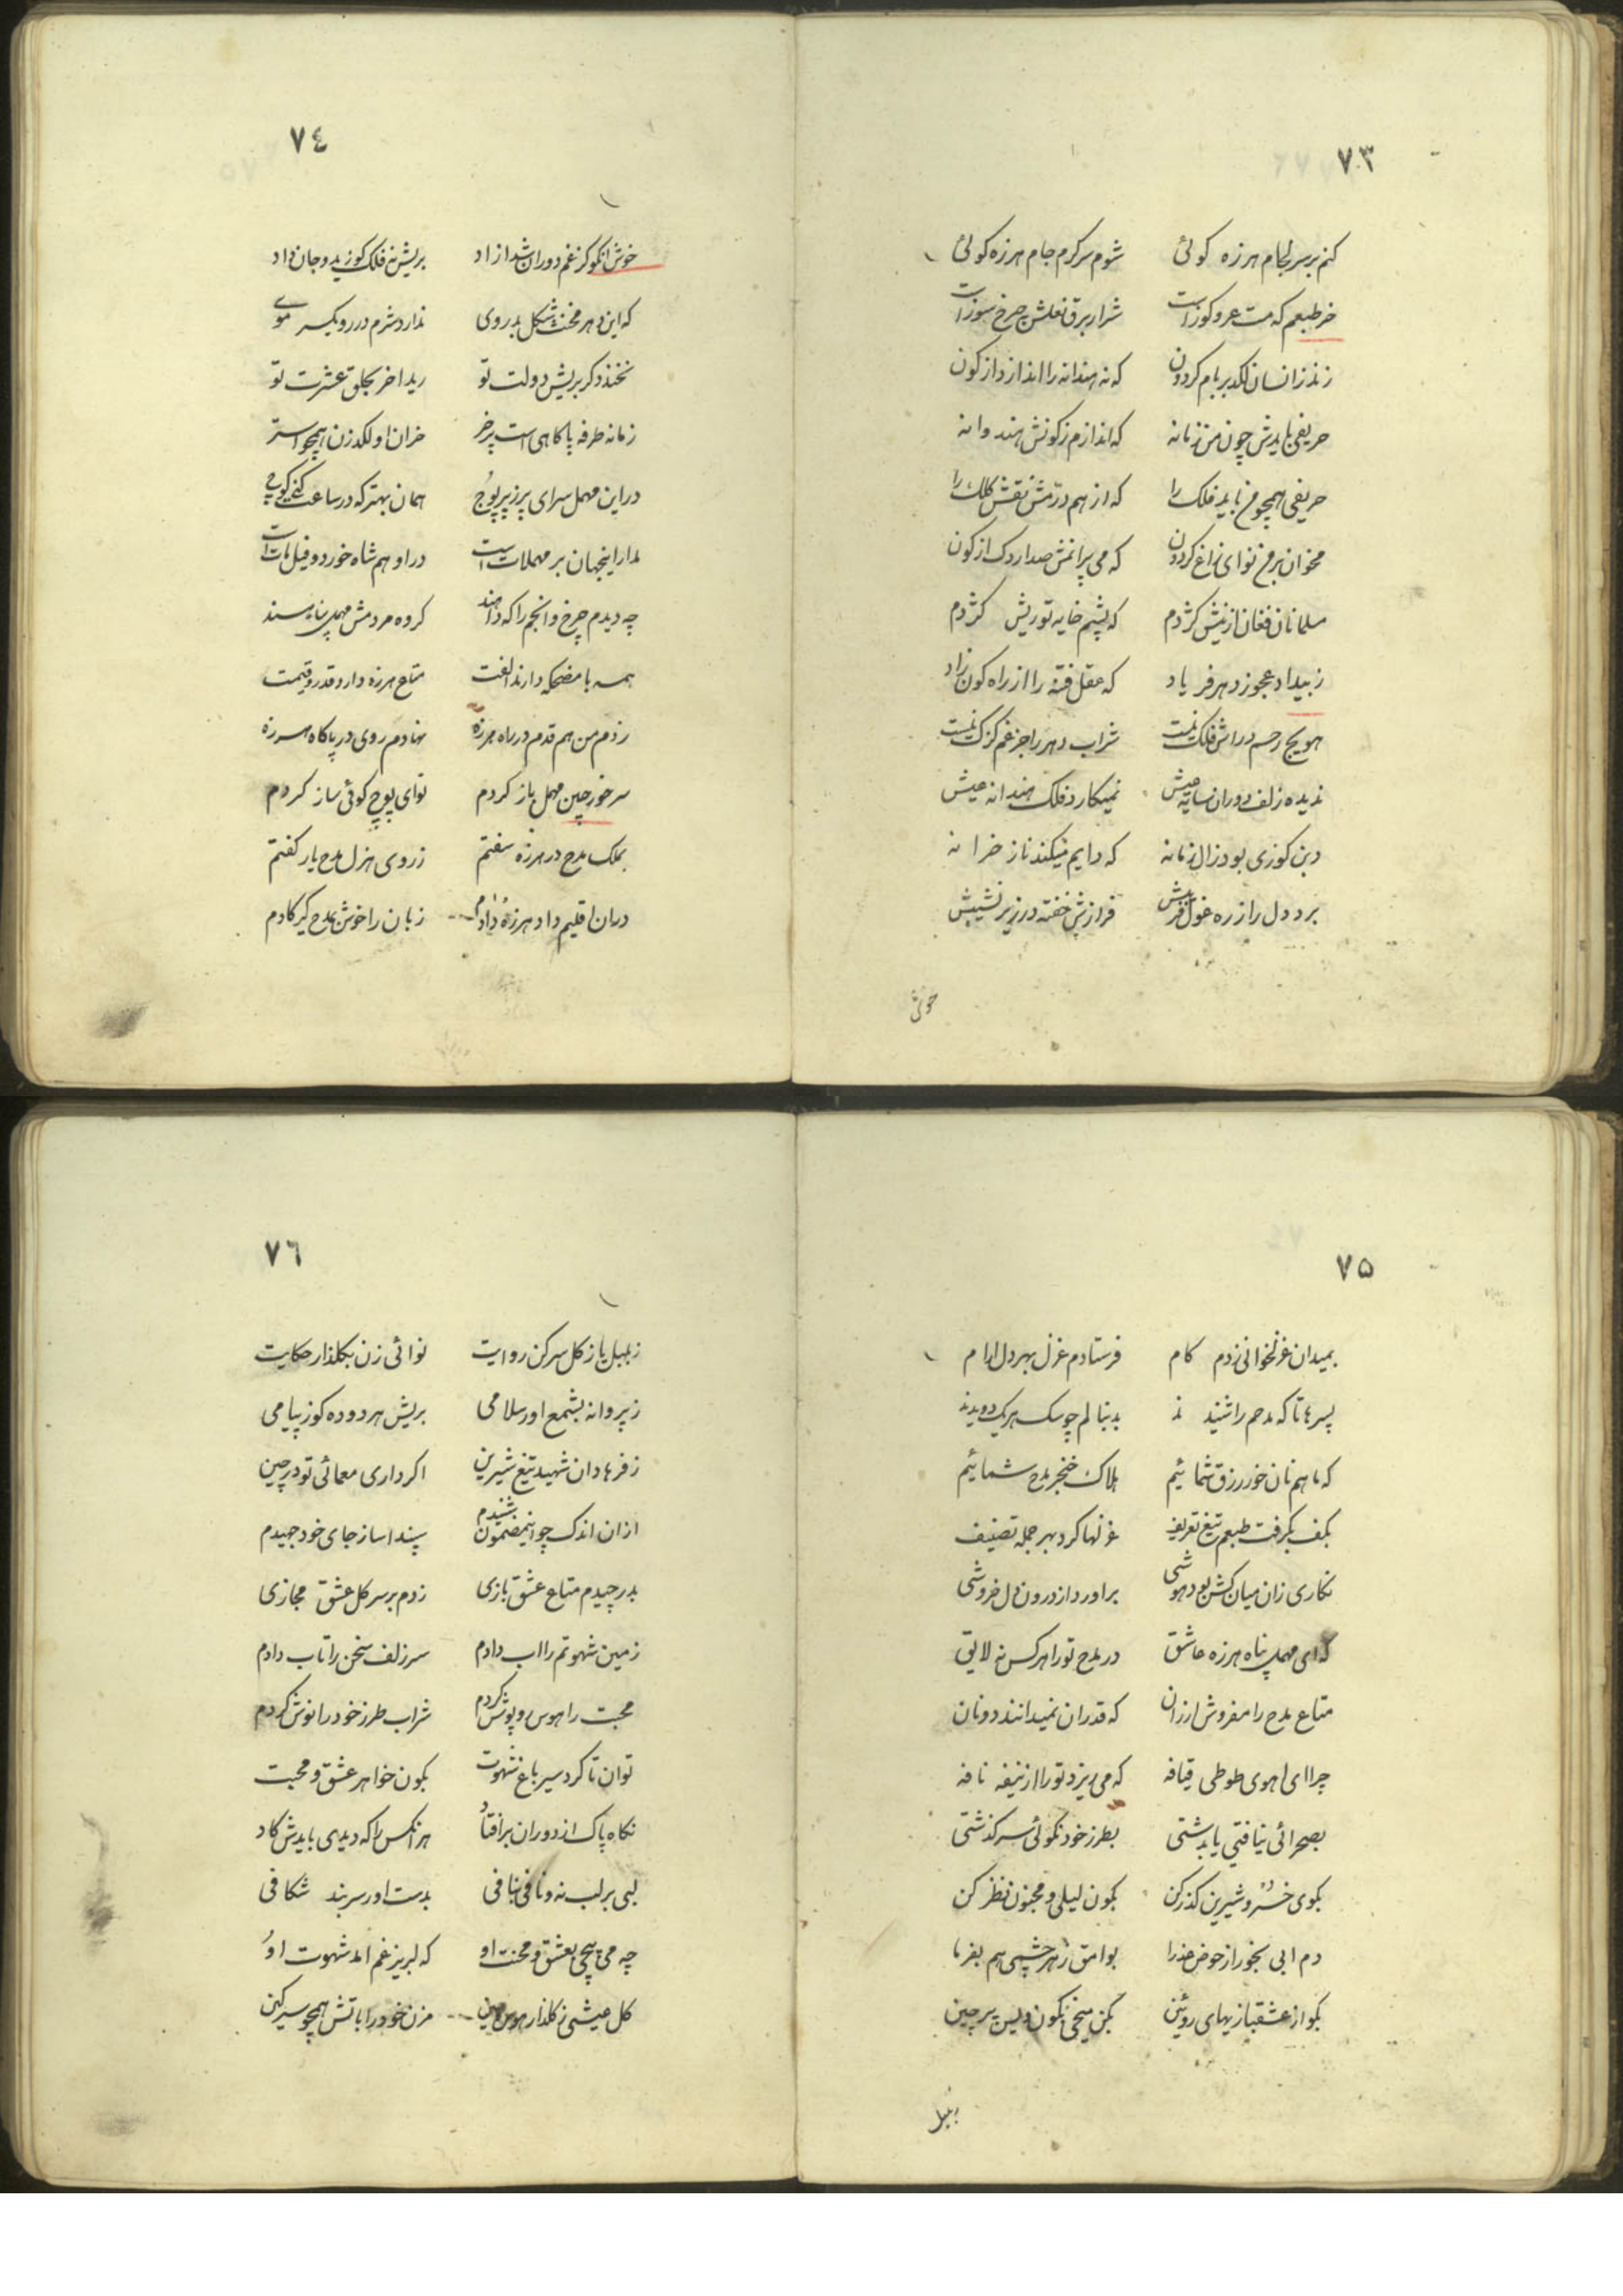 ٧٣
کنم بر سر لجام هرزه کوئی شوم سرکرم جام هرزه کوئی
خر طبعم که مست عر و کوز است شرار برق نعلش چرخ سوز است
زند زانسان لکد بر بام کردون که نه هندانه را اندازد از کون
حریفی بایدش چون من زمانه که اندازم ز کونش هندوانه
حریفی همچو من باید فلک را که از هم درمش نقش کلک را
مخوان بر من نوای زاغ کردون که می پرانمش صد اردک از کون
مسلمانان فغان از نیش کژدم که پشم خایه تو ریش کژدم
ز بیداد عجوز دهر فریاد که عقل فتنه را از راه کون زاد
هویج رحم در اش فلک نیست شراب دهر را جز غم کزک نیست
ندیده زلف دوران سایه میش نمیکارد فلک هندانه میش
دبن کوزی بود زال زمانه که دایم میکند ناز خرانه
برد دل را ز ره غول فریبش فرازش خفته در زیر نشیبش
خوش
٧٤
خوش انکو کز غم دوران شد ازاد بریش نه فلک کوزید و جان داد
که این دهر مخنث شکل بدروی ندارد شرم در رو یکسر موی
نخندد کر بریش دولت تو رید اخر بحلق عشرت تو
زمانه طرفه پاکاهی است پر خر خران او لکدزن همچو استر
در این مهمل سرای پر ز پر پوچ همان بهتر که در ساعت کنی کوچ
مدار اینجهان بر مهملات است در او هم شاه خورد و فیل مات است
چه دیدم چرخ و انجم را که دانند کروه مردمش مهمل پناه سند
همه با مضحکه دارند الفت متاع هرزه دارد قدر و قیمت
زدم من هم قدم در راه هرزه نهادم روی در پاکاه هرزه
سر خورجین مهمل باز کردم نوای پوچ کوئی ساز کردم
بملک مدح در هرزه سفتم ز روی هزل مدح یار کفتم
دران اقلیم داد هرزه دادم زبان را خوش بمدح کیر کادم
٧٥
بمیدان غزلخوانی زدم کام فرستادم غزل بهر دل ارام
پسرها تا که مدحم را شنیدند بدنبالم چو سک هر یک دویدند
که ما هم نان خور رزق شمائیم هلاک خنجر مدح شمائیم
بکف بکرفت طبعم تیغ تعریف غزلها کرد بهر جمله تصنیف
نکاری زان میان کش بود هوشی براورد از درون دل خروشی
که ای مهمل پناه هرزه عاشق در مدح تو را هر کس نه لایق
متاع مدح را مفروش ارزان که قدر ان نمیدانند دونان
چرا ای اهوی طوطی قیافه که می ریزد تو را از نیفه نافه
بصحرائی نیافتی یا بدشتی بطرز خود نکوئی سرکذشتی
بکوی خسرو شیرین کذر کن بکون لیلی و مجنون نظر کن
دم ابی بخور از حوض عذرا بوامق زهر چشمی هم بفرما
بکو از عشقبازیهای روئین بکن میخی بکون ویس پرچین
بلبل
٧٦
ز بلبل باز کل سر کن روایت نوائی زن بکلذار حکایت
ز پروانه بشمع اور سلامی بریش هر دو ده کوز پیامی
ز فرهاد ان شهید تیغ شیرین اکر داری معمائی تو در چین
از ان اندک چو اینمضمون شنیدم سپند اسا ز جای خود جهیدم
بدر چیدم متاع عشق بازی زدم بر سر کل عشق مجازی
زمین شهوتم را اب دادم سر زلف سخن را تاب دادم
محبت را هوس روپوش کردم شراب طرز خود را نوش کردم
توان تا کرد سیر باغ شهوت بکون خواهر عشق و محبت
نکاه پاک از دوران برافتاد هر انکس را که دیدی بایدش کاد
لبی بر لب نه و نافی بنافی بدست اور سر بند شکافی
چه می پیچی بعشق و محنت او که لبریز غم امد شهوت او
کل عیشی ز کلذار هوس چین مزن خود را باتش همچو سرکین